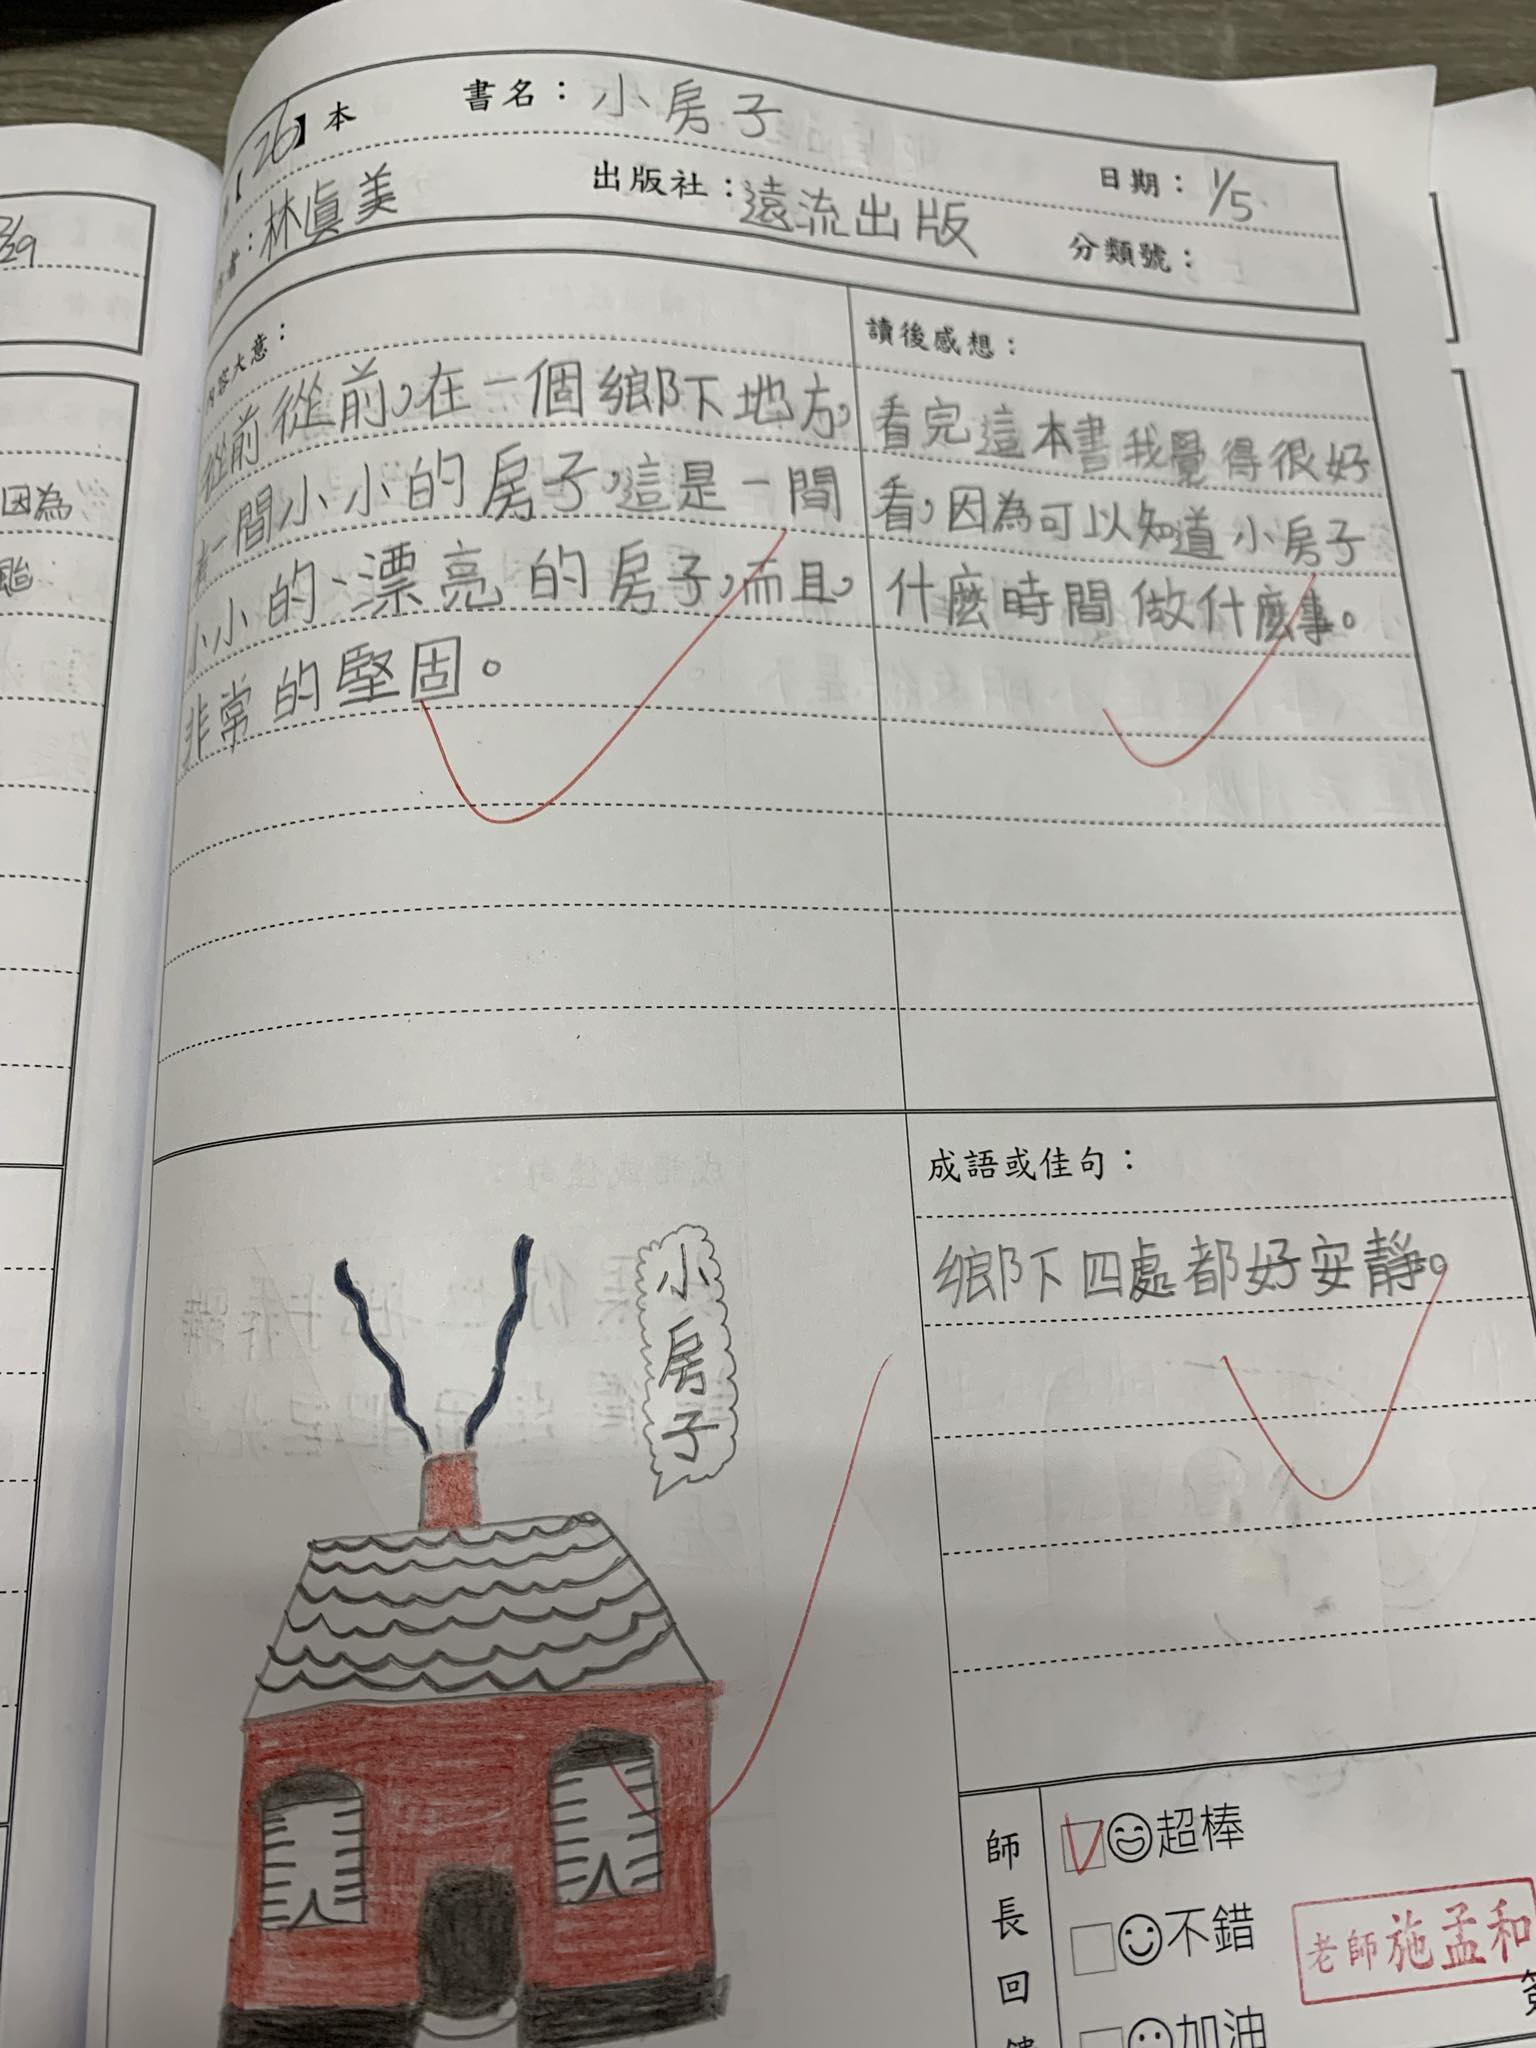 【26】本 書名：小房子
者：林真美 出版社：遠流出版 日期：1/5
分類號：
內容大意：
從前從前，在一個鄉下地方，
有一間小小的房子，這是一間
小小的、漂亮的房子，而且，
非常的堅固。
讀後感想：
看完這本書我覺得很好
看，因為可以知道小房子
什麼時間做什麼事。
小房子
成語或佳句：
鄉下四處都好安靜。
師長回
超棒
不錯
加油
老師施孟和
/29
因為
颱